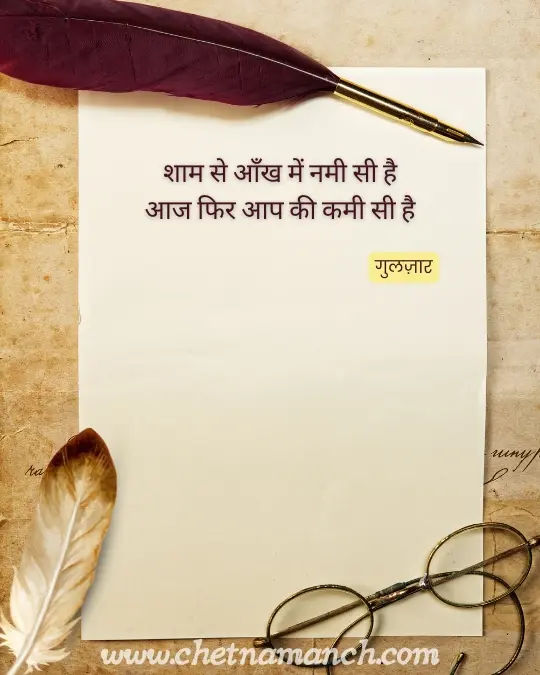 शाम से आँख में नमी सी है
आज फिर आप की कमी सी है
गुलज़ार
www.chetnamanch.com